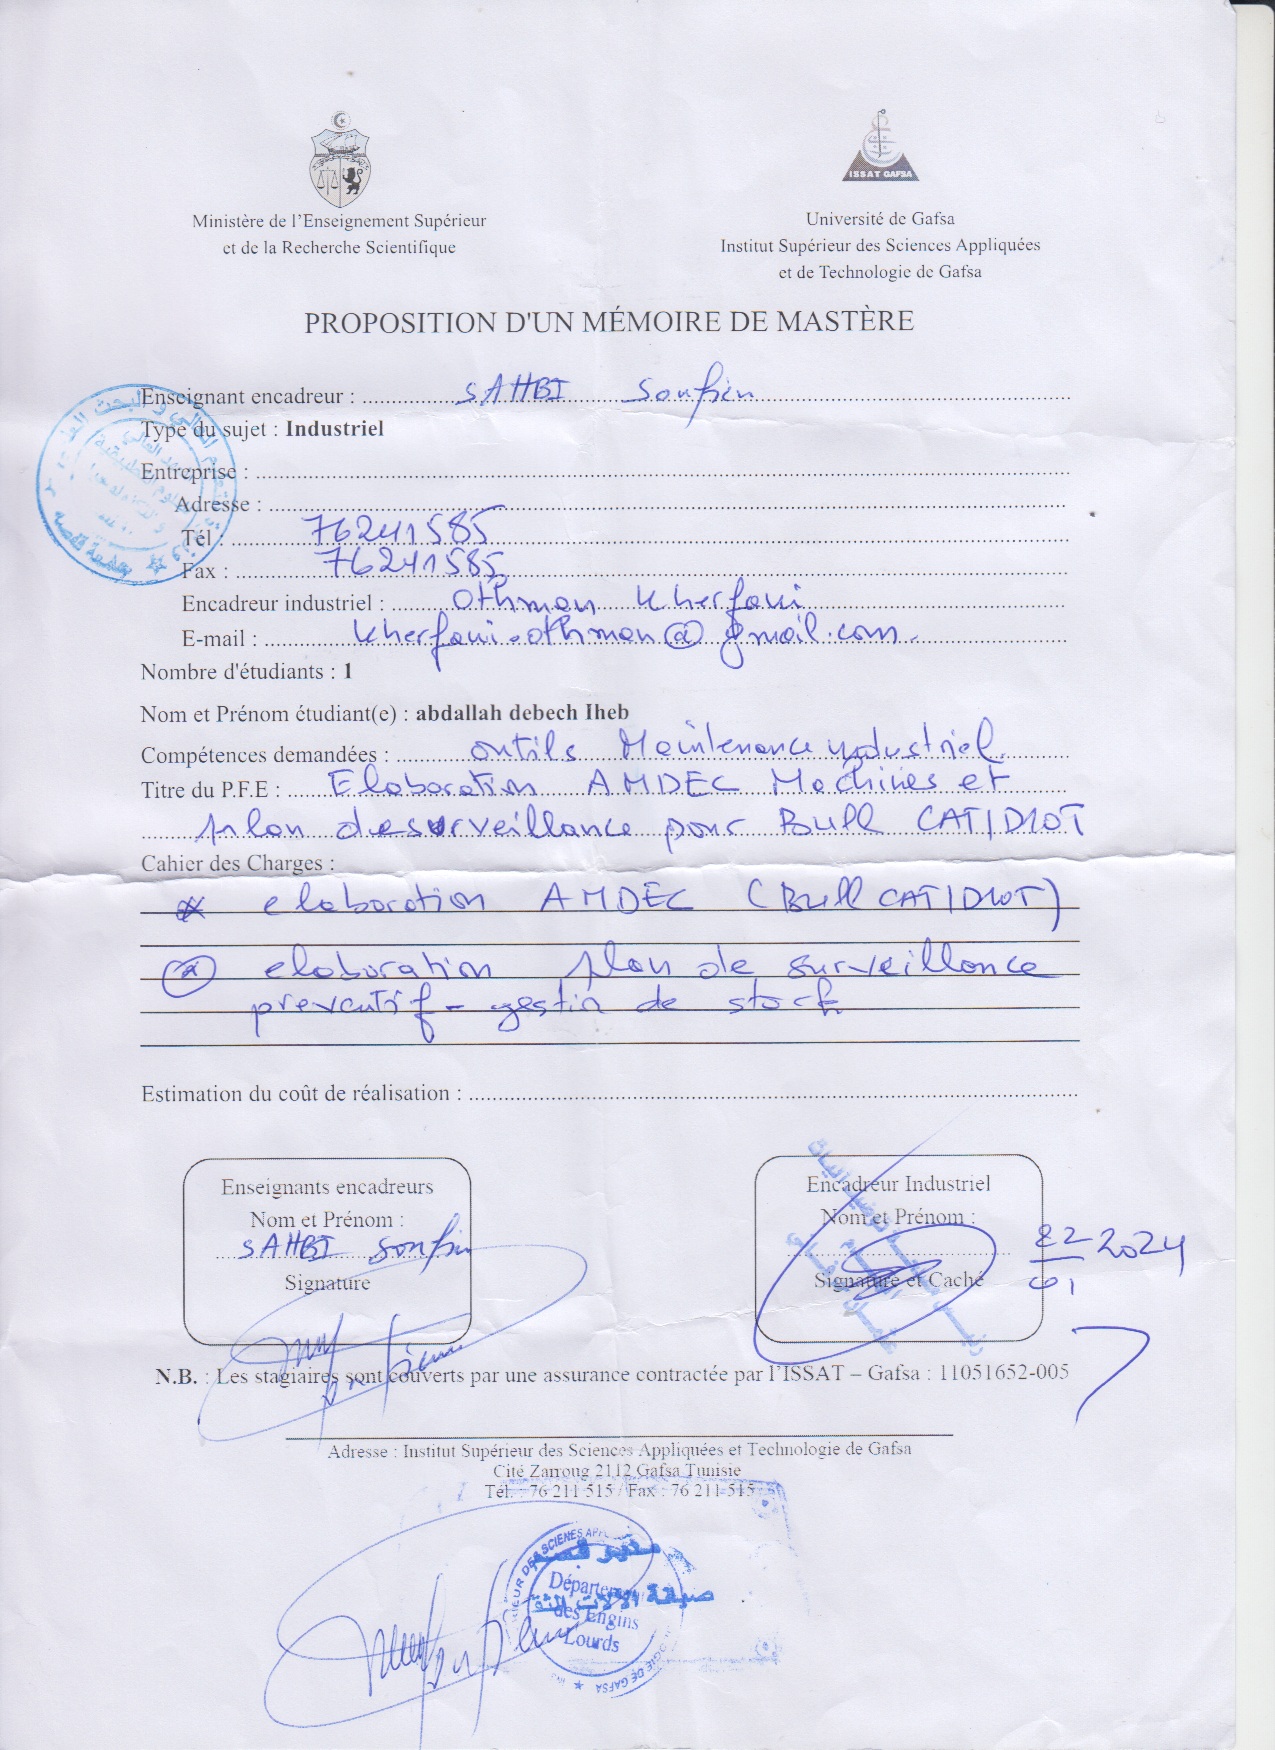 ISSAT GAFSA
Ministère de l'Enseignement Supérieur
et de la Recherche Scientifique
Université de Gafsa
Institut Supérieur des Sciences Appliquées
et de Technologie de Gafsa
PROPOSITION D'UN MÉMOIRE DE MASTÈRE
Enseignant encadreur : SAHBI Soufien
Type du sujet : Industriel
Entreprise :
Adresse :
Tél : 76241585
Fax : 76241585
Encadreur industriel : Othman Kherfani
E-mail : kherfani.othman@gmail.com
Nombre d'étudiants : 1
Nom et Prénom étudiant(e) : abdallah debech Iheb
Compétences demandées : outils Maintenance industriel
Titre du P.F.E : Elaboration AMDEC Machines et
plan de surveillance pour Bull CAT
Cahier des Charges :
elaboration AMDEC (Bull CAT
elaboration plan de surveillance
preventif - gestin de stock
Estimation du coût de réalisation :
Enseignants encadreurs
Nom et Prénom :
SAHBI Soufien
Signature
Encadreur Industriel
Nom et Prénom :
Signature et Caché
2024
01
N.B. : Les stagiaires sont couverts par une assurance contractée par l'ISSAT – Gafsa : 11051652-005
Adresse : Institut Supérieur des Sciences Appliquées et Technologie de Gafsa
Cité Zarroug 2112 Gafsa Tunisie
Tél. : 76 211 515 / Fax : 76 211 515
Département
des Engins
Lourds